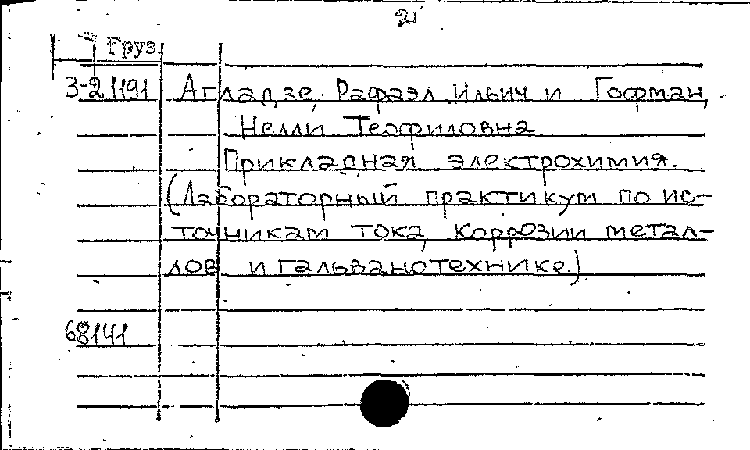 21
Груз.
3-21191 Агладзе, Рафаэл Ильич и Гофман,
Нелли Теофиловна
Прикладная электрохимия.
(Лабораторный практикум по ис-
точникам тока, коррозии метал-
лов и гальванотехнике.)
68141